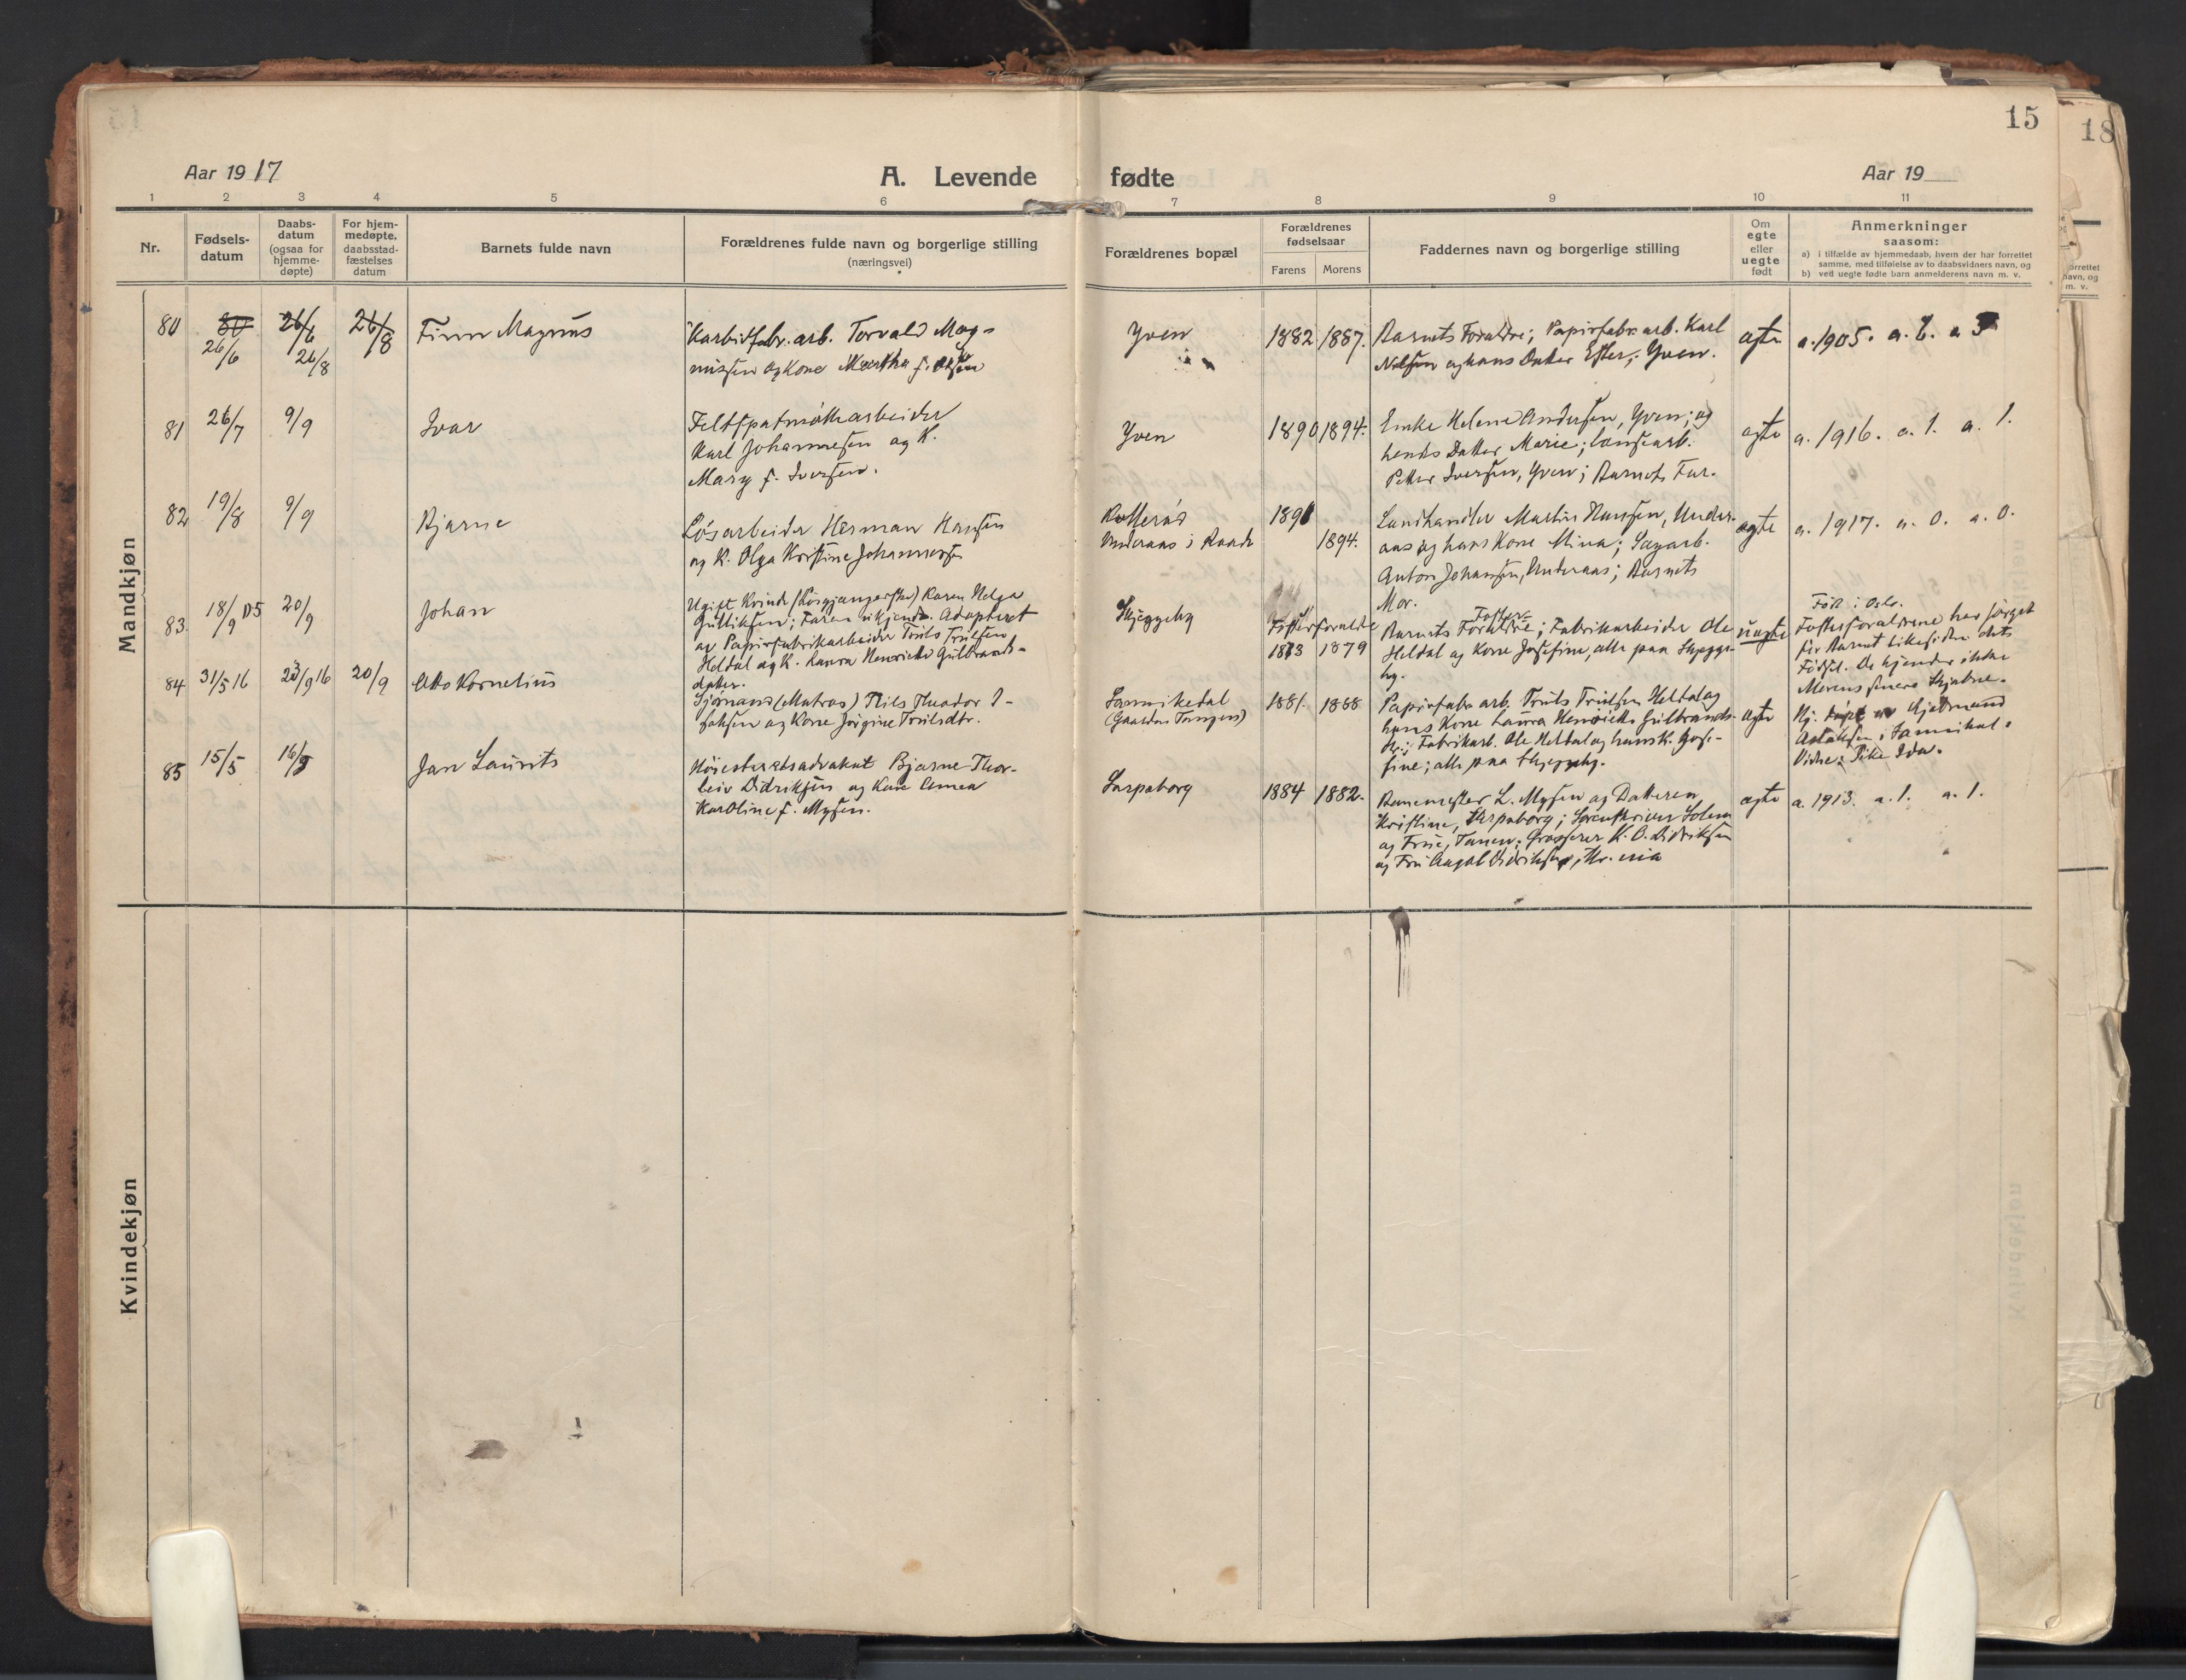 15
18
Aar 1917
A. Levende fødte
Aar 19
1 2 3 4 5 6 7 8 9 10 11
Nr.
Fødsels-
datum
Daabs-
datum
(ogsaa for
hjemme-
døpte)
For hjem-
medøpte,
daabsstad-
fæstelses
datum
Barnets fulde navn
Forældrenes fulde navn og borgerlige stilling
(næringsvei)
Forældrenes bopæl
Forældrenes
fødselsaar
Farens Morens
Faddernes navn og borgerlige stilling
Om
egte
eller
uegte
født
Anmerkninger
saasom:
a) i tilfælde av hjemmedaab, hvem der har forrettet
samme, med tilføielse av to daabsvidners navn, og
b) ved uegte fødte barn anmelderens navn m. v.
Mandkjøn
80
26/6
26/6
26/8
26/8
Finn Magnus
Karbidfabr. arb. Torvald Mag-
nussen og Kone Martha f.
Yven
1882 1887.
Barnets Forældre; Papirfabr. arb. Karl
Nilsen og hans Datter Ester; Yven.
ægte
a. 1905. a. 6. a 3
81
26/7
9/9
Ivar
Feltspatmøllearbeider
Karl Johannesen og K.
Mary f. Iversen.
Yven
1890 1894.
Enke Helene Andersen, Yven; og
hends Datter Marie; landsearb.
Petter Iversen, Yven; Barnets Far.
ægte
a. 1916. a. 1. a. 1.
82
19/8
9/9
Bjarne
Løsarbeider Herman Hansen
og K. Olga Kristine Johannessen
Rollerød
Underaas i Raade
1891
1894.
Landhandler Martin Hansen, Under-
aas og hans Kone Mina; Sagarb.
Anton Johansen, Underaas; Barnets
Mor.
ægte
a. 1917. a. 0. a. 0.
83
18/9 05
20/9
Johan
Ugift Kvinde (Løsgjængerske) Karen Helga
Gulliksen; Faren ukjendt. Adopteret
av Papirfabrikarbeider Truls Trulsen
Heldal og K. Laura Henriette Gulbrands-
datter.
Skjeggeby
Fosterforældre
1873 1879
Foster-
Barnets Forældre; Fabrikarbeider Ole
Heldal og Kone Josefine, alle paa Skjegge-
by.
uægte
Født i Oslo.
Fosterforældrene har sørget
for Barnet like siden dets
Fødsel. De kjender ikke
Morens senere Skjæbne.
84
31/5 16
23/9 16
20/9
Otto Kornelius
Sjømand (Matros) Nils Theodor I-
saksen og Kone Jørgine Trulsdtr.
Sannikedal
(Gaarden Tangen)
1881. 1888
Papirfabr. arb. Truls Trulsen Heldal og
hans Kone Laura Henriette Gulbrands-
dtr.; Fabrikarb. Ole Heldal og hans K. Jose-
fine; alle paa Skjeggeby.
ægte
Hj. døpt av Hjelmand
Aslaksen i Sannikal.
Vidne: Pike Ida.
85
15/5
16/9
Jan Laurits
Høiesteretsadvokat Bjarne Thor-
leiv Didriksen og Kone Anna
Karoline f. Mysen.
Sarpsborg
1884 1882.
Banemester L. Mysen og Datteren
Kristine, Sarpsborg; Sorenskriver Solem
og Frue, Tanen; Grosserer K. O. Didriksen
og Fru Aagot Didriksen, Kr.ania
ægte
a. 1913. a. 1. a. 1.
Kvindekjøn